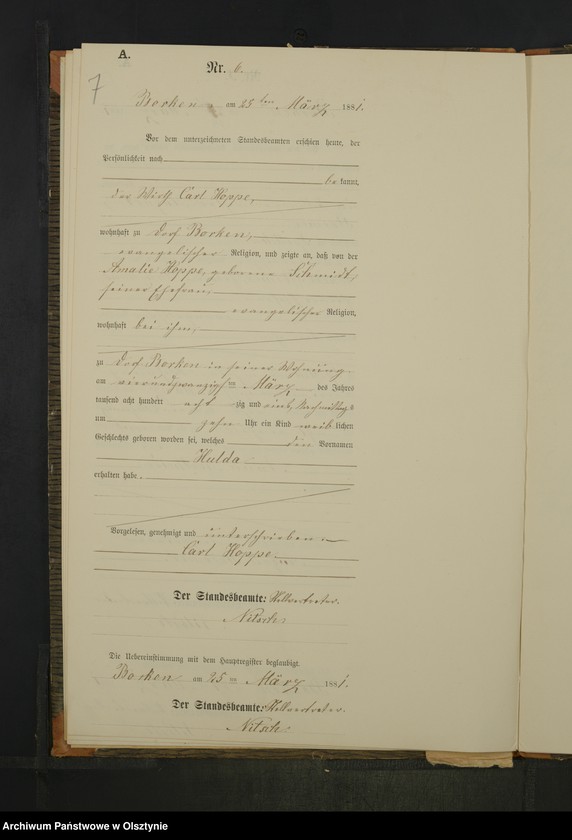 A.
7
Nr. 6.
Borken am 25ten März 1881.
Vor dem unterzeichneten Standesbeamten erschien heute, der
Persönlichkeit nach
bekannt,
der Wirth Carl Hoppe,
wohnhaft zu Dorf Borken,
evangelischer Religion, und zeigte an, daß von der
Amalie Hoppe, geborene Schmidt,
seiner Ehefrau,
evangelischer Religion,
wohnhaft bei ihm,
zu Dorf Borken in seiner Wohnung
am vierundzwanzigsten März des Jahres
tausend acht hundert achtzig und eins, Nachmittags
um zehn Uhr ein Kind weiblichen
Geschlechts geboren worden sei, welches den Vornamen
Hulda
erhalten habe.
Vorgelesen, genehmigt und unterschrieben
Carl Hoppe.
Der Standesbeamte: Stellvertreter.
Nitsch
Die Uebereinstimmung mit dem Hauptregister beglaubigt.
Borken am 25ten März 1881.
Der Standesbeamte: Stellvertreter.
Nitsch
Archiwum Państwowe w Olsztynie